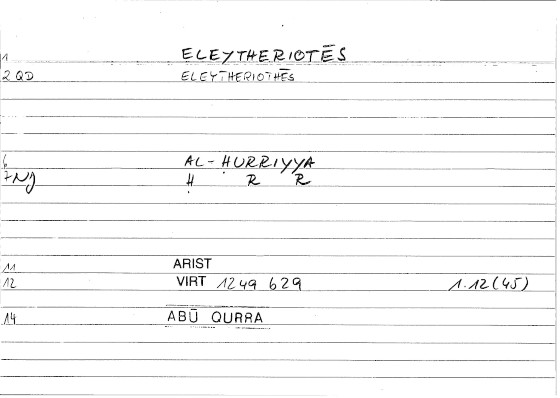 1 ELEYTHERIOTĒS
2 QD ELEYTHERIOTHĒS
6 AL-ḤURRIYYA
7 NJ Ḥ R R
11 ARIST
12 VIRT 1249 629 1.12(45)
14 ABŪ QURRA